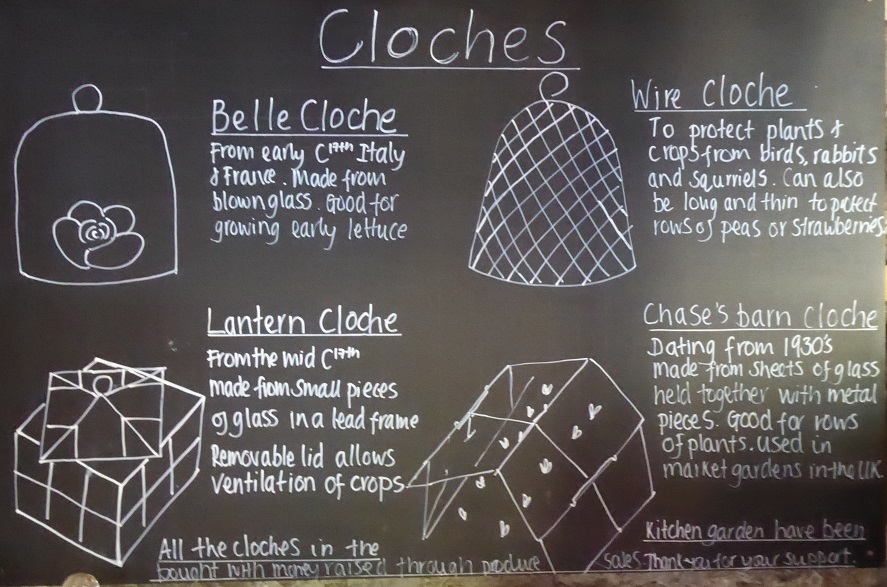 Cloches
Belle Cloche
From early C17th Italy
& France. Made from
blown glass. Good for
growing early lettuce
Wire Cloche
To protect plants &
crops from birds, rabbits
and squrriels. Can also
be long and thin to protect
rows of peas or strawberries.
Lantern Cloche
From the mid C17th
made from small pieces
of glass in a lead frame
Removable lid allows
ventilation of crops
Chase's barn Cloche
Dating from 1930's
made from sheets of glass
held together with metal
pieces. Good for rows
of plants. used in
market gardens in the UK
All the cloches in the Kitchen garden have been
bought with money raised through produce sales. Thank you for your support.